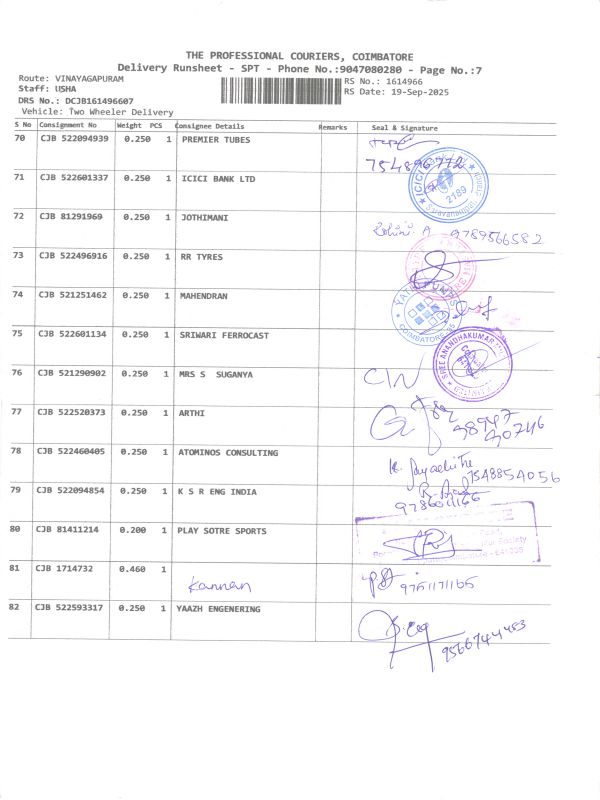 THE PROFESSIONAL COURIERS, COIMBATORE
Delivery Runsheet - SPT - Phone No.:9047080280 - Page No.:7
Route: VINAYAGAPURAM RS No.: 1614966
Staff: USHA RS Date: 19-Sep-2025
DRS No.: DCJB161496607
Vehicle: Two Wheeler Delivery
S No Consignment No Weight PCS Consignee Details Remarks Seal & Signature
70 CJB 522094939 0.250 1 PREMIER TUBES
754896772
71 CJB 522601337 0.250 1 ICICI BANK LTD
ICICI 2189
72 CJB 81291969 0.250 1 JOTHIMANI
A 9789566582
73 CJB 522496916 0.250 1 RR TYRES
74 CJB 521251462 0.250 1 MAHENDRAN
COIMBATORE
75 CJB 522601134 0.250 1 SRIWARI FERROCAST
SREE ANANDHAKUMAR
76 CJB 521290902 0.250 1 MRS S SUGANYA
77 CJB 522520373 0.250 1 ARTHI
78 CJB 522460405 0.250 1 ATOMINOS CONSULTING
7548854056
79 CJB 522094854 0.250 1 K S R ENG INDIA
80 CJB 81411214 0.200 1 PLAY SOTRE SPORTS
Society
81 CJB 1714732 0.460 1
Kannan 9751171165
82 CJB 522593317 0.250 1 YAAZH ENGENERING
9566744483